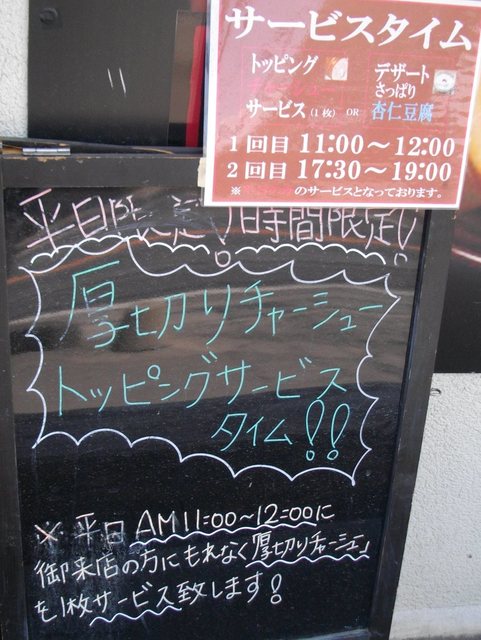 サービスタイム
トッピング
デザート
さっぱり
サービス (1枚) OR 杏仁豆腐
1回目 11:00～12:00
2回目 17:30～19:00
※ のサービスとなっております。
平日限定!時間限定!
厚切りチャーシュー
トッピングサービス
タイム!!
※平日AM11:00～12:00に
御来店の方にもれなく厚切りチャーシュー
を1枚サービス致します!